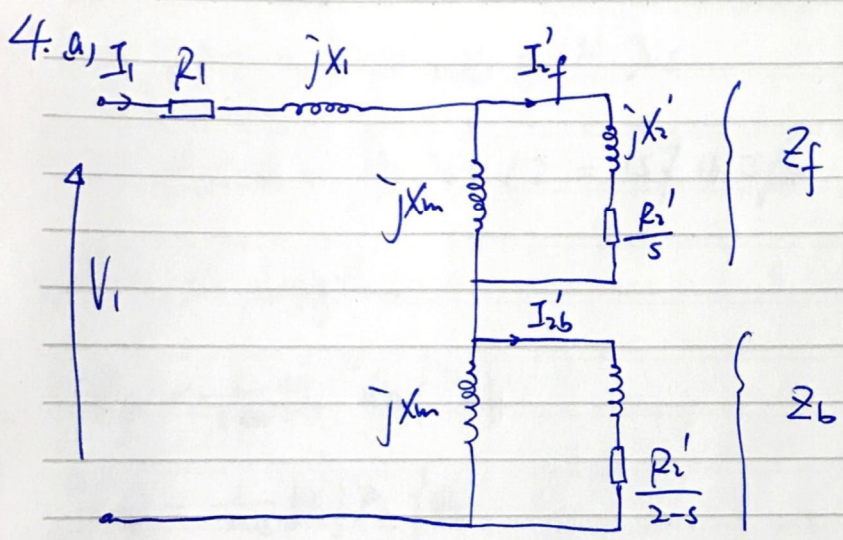 4. a,
I₁ R₁ jX₁ I₂'f
jXm jX₂' Zf
R₂'/s
V₁
I₂'b
jXm Zb
R₂'/2-s